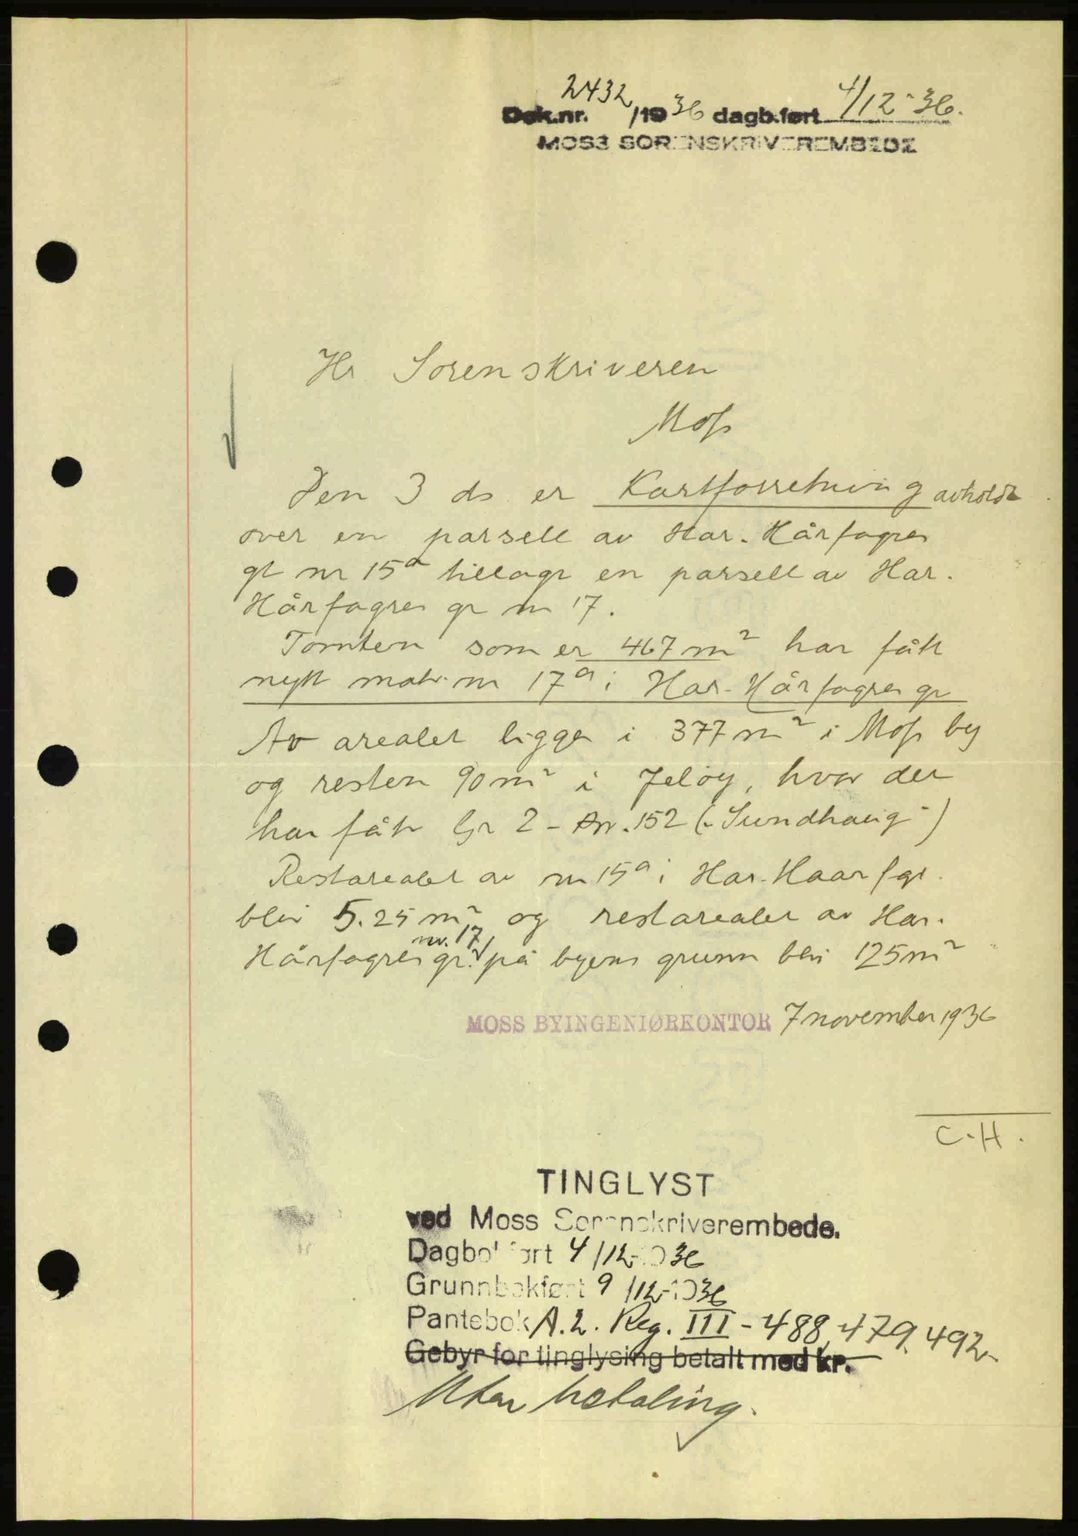 Dok.nr. 2432/1936 dagb.ført 4/12-36.
MOSS SORENSKRIVEREMBEDE
Hr Sorenskriveren
Moss
Den 3 ds er Kartforretning avholdt
over en parsell av Har. Hårfagres
gt nr 15a tillagt en parsell av Har.
Hårfagres gt nr 17.
Tomten som er 467 m² har fått
nytt matr. nr 17a i Har. Hårfagres gt
Av arealet ligger i 377 m² i Moss by
og resten 90 m² i Jeløy, hvor det
har fått Gr 2 - Br. 152 ("Sundhaug")
Restarealet av nr 15a i Har. Haarfgt.
blir 5.25 m² og restarealet av Har.
Hårfagres gt. nr. 17 på byens grunn blir 125 m²
MOSS BYINGENIØRKONTOR 7 november 1936
C.H.
TINGLYST
ved Moss Sorenskriverembede.
Dagbokført 4/12-1936
Grunnbokført 9/12-1936
Pantebok A.2. Reg. III - 488, 479, 492-
Gebyr for tinglysing betalt med kr.
Uten betaling.